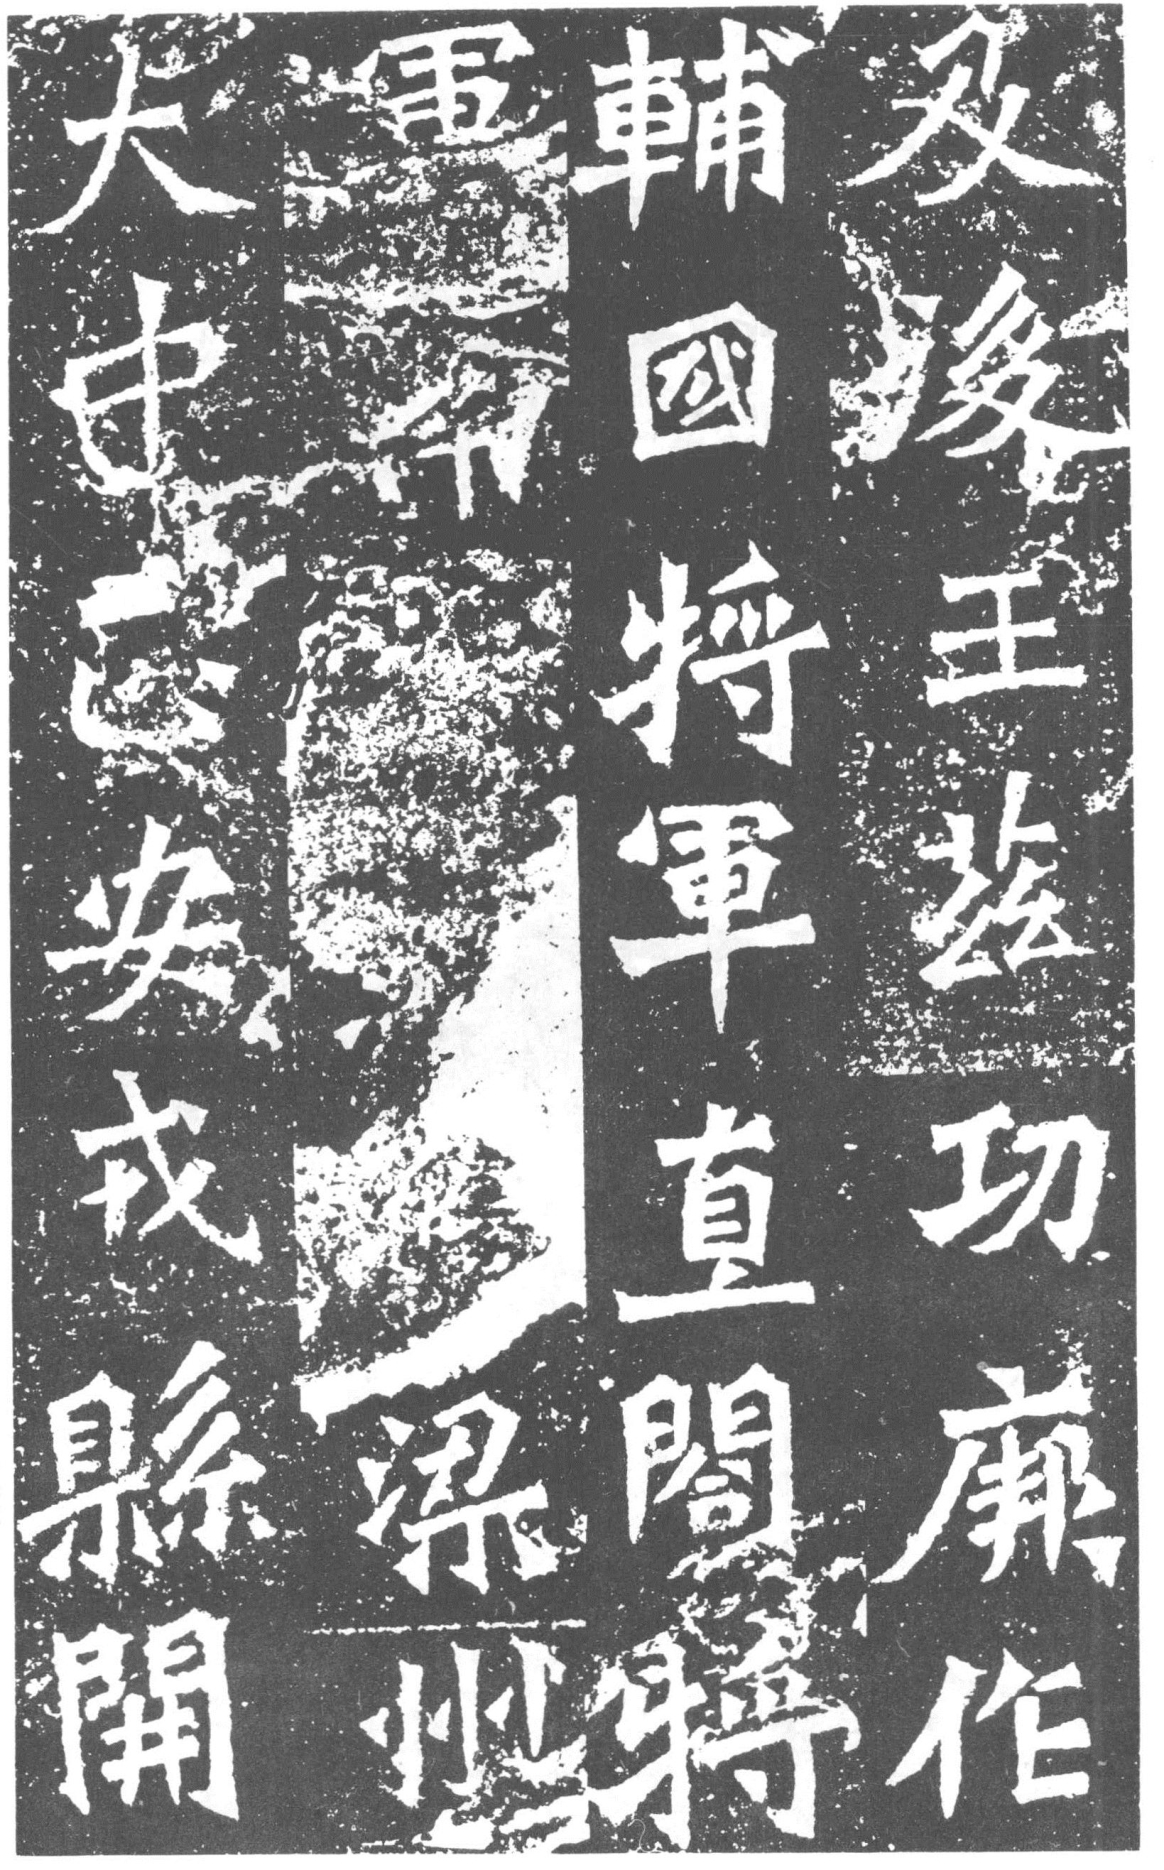 及後王茲功靡作
輔國將軍直閤將
軍梁州
大中正安戎縣開